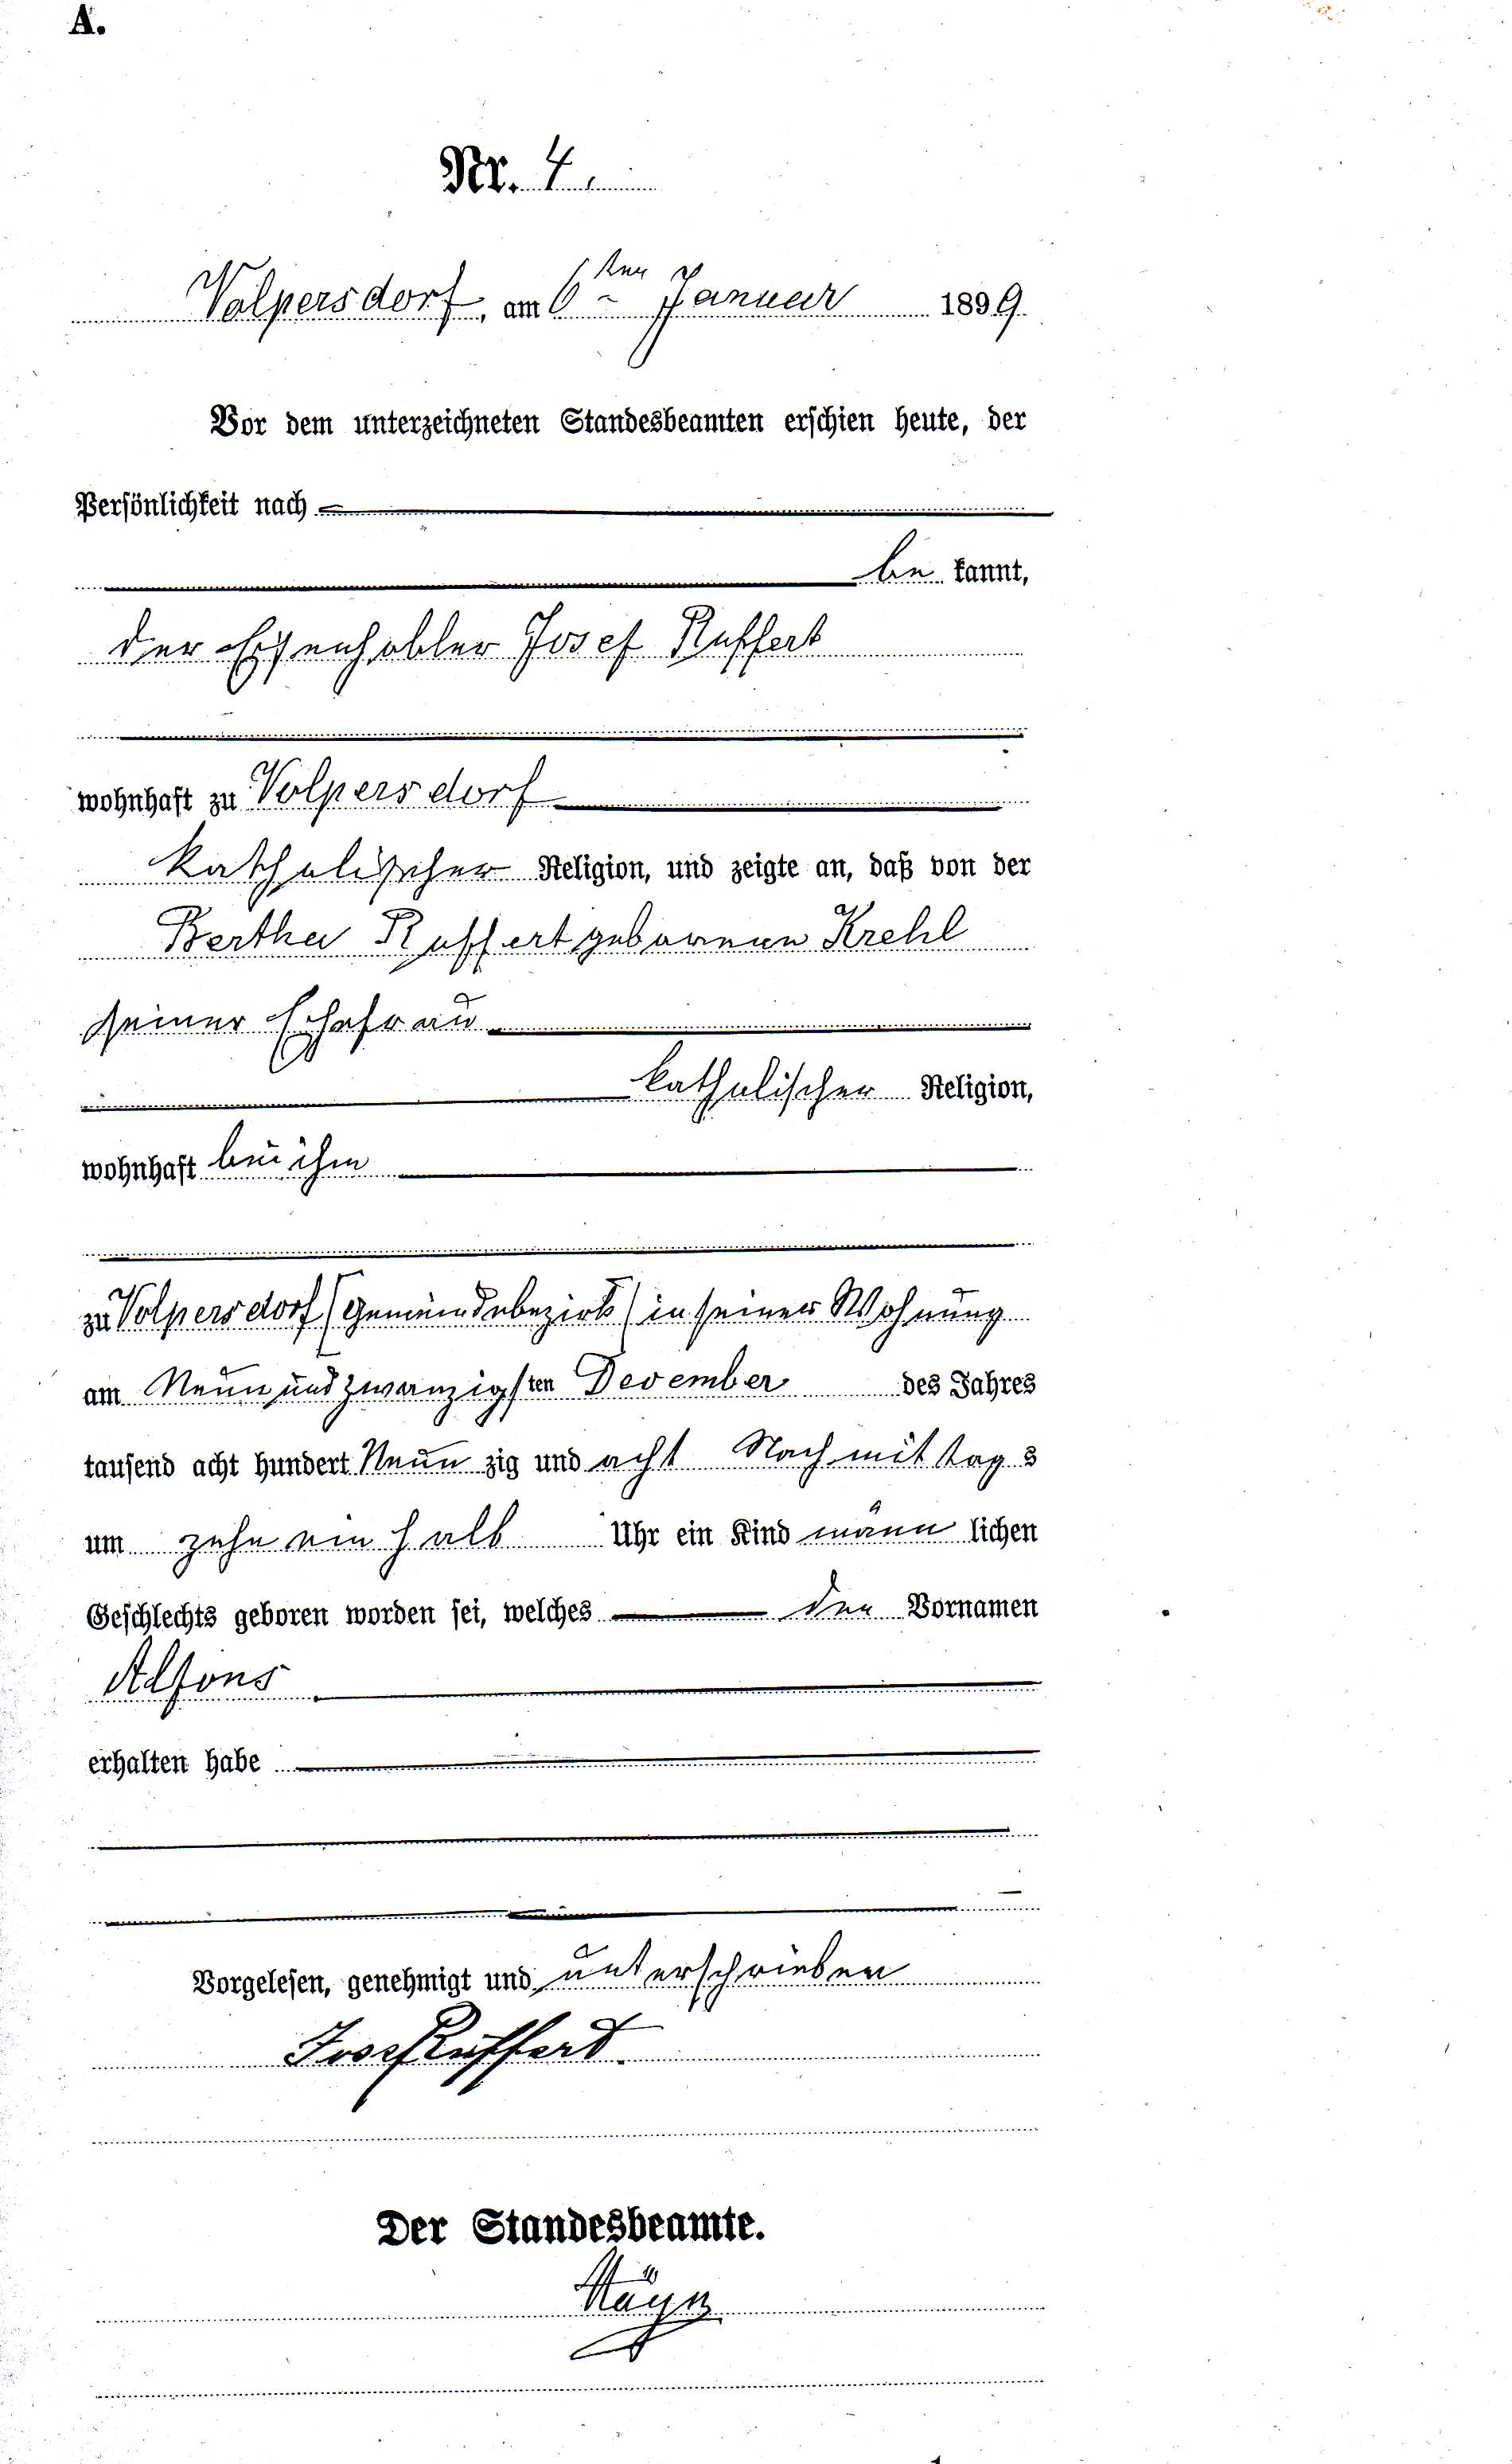 A.
Nr. 4.
Volpersdorf, am 6ten Januar 1899.
Vor dem unterzeichneten Standesbeamten erschien heute, der
Persönlichkeit nach
be kannt,
der Eisenhobler Josef Ruffert
wohnhaft zu Volpersdorf
katholischer Religion, und zeigte an, daß von der
Bertha Ruffert geborenen Krehl
seiner Ehefrau
katholischer Religion,
wohnhaft bei ihm
zu Volpersdorf (Gemeindebezirk) in seiner Wohnung
am Neunundzwanzigsten Dezember des Jahres
tausend acht hundert Neun zig und acht Nachmittags
um zehn ein halb Uhr ein Kind männ lichen
Geschlechts geboren worden sei, welches den Vornamen
Alfons
erhalten habe
Vorgelesen, genehmigt und unterschrieben
Josef Ruffert.
Der Standesbeamte.